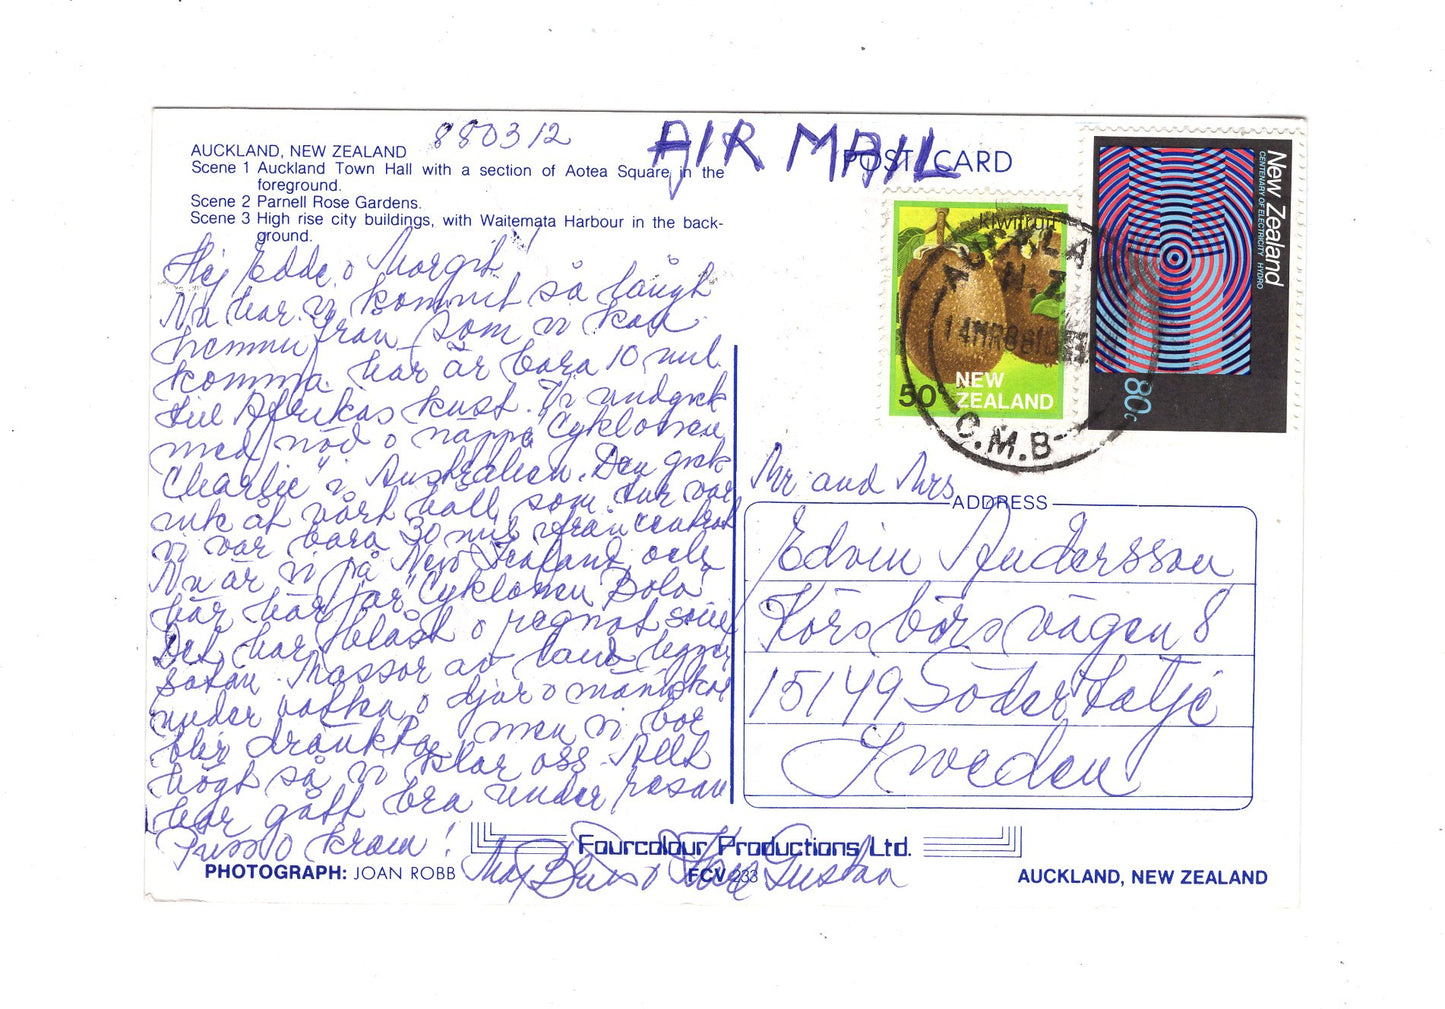 880312
AIR MAIL
AUCKLAND, NEW ZEALAND
Scene 1 Auckland Town Hall with a section of Aotea Square in the
foreground.
Scene 2 Parnell Rose Gardens.
Scene 3 High rise city buildings, with Waitemata Harbour in the back-
ground.
POST CARD
Hej Edde o Margit!
Nu har vi kommit så långt
hemmifrån som vi kan
komma. här är bara 10 mil
till Afrikas kust. Vi undgick
med nöd o näppe "Cyklonen
Charlie" i Australien. Den gick
ink åt vårt håll som tur var
vi var bara 30 mil ifrån centrat
Nu är vi på New Zealand och
här har far "Cyklonen Bola"
Det har blåst o regnat som
Satan. Massor av land ligger
under vatten o djur o människor
blir dränkta men vi bor
högt så vi klar oss. Allt
har gått bra under resan
Puss o kram!
Maj Britt o Gustav
kiwifruit
50c
NEW
ZEALAND
New Zealand
CENTENARY OF ELECTRICITY HYDRO
80c
AUCKLAND
N.Z.
14MR88
C.M.B
Mr and Mrs
ADDRESS
Edvin Andersson
Korsbörsvägen 8
15149 Södertälje
Sweden
Fourcolour Productions Ltd.
PHOTOGRAPH: JOAN ROBB
FCV 233
AUCKLAND, NEW ZEALAND